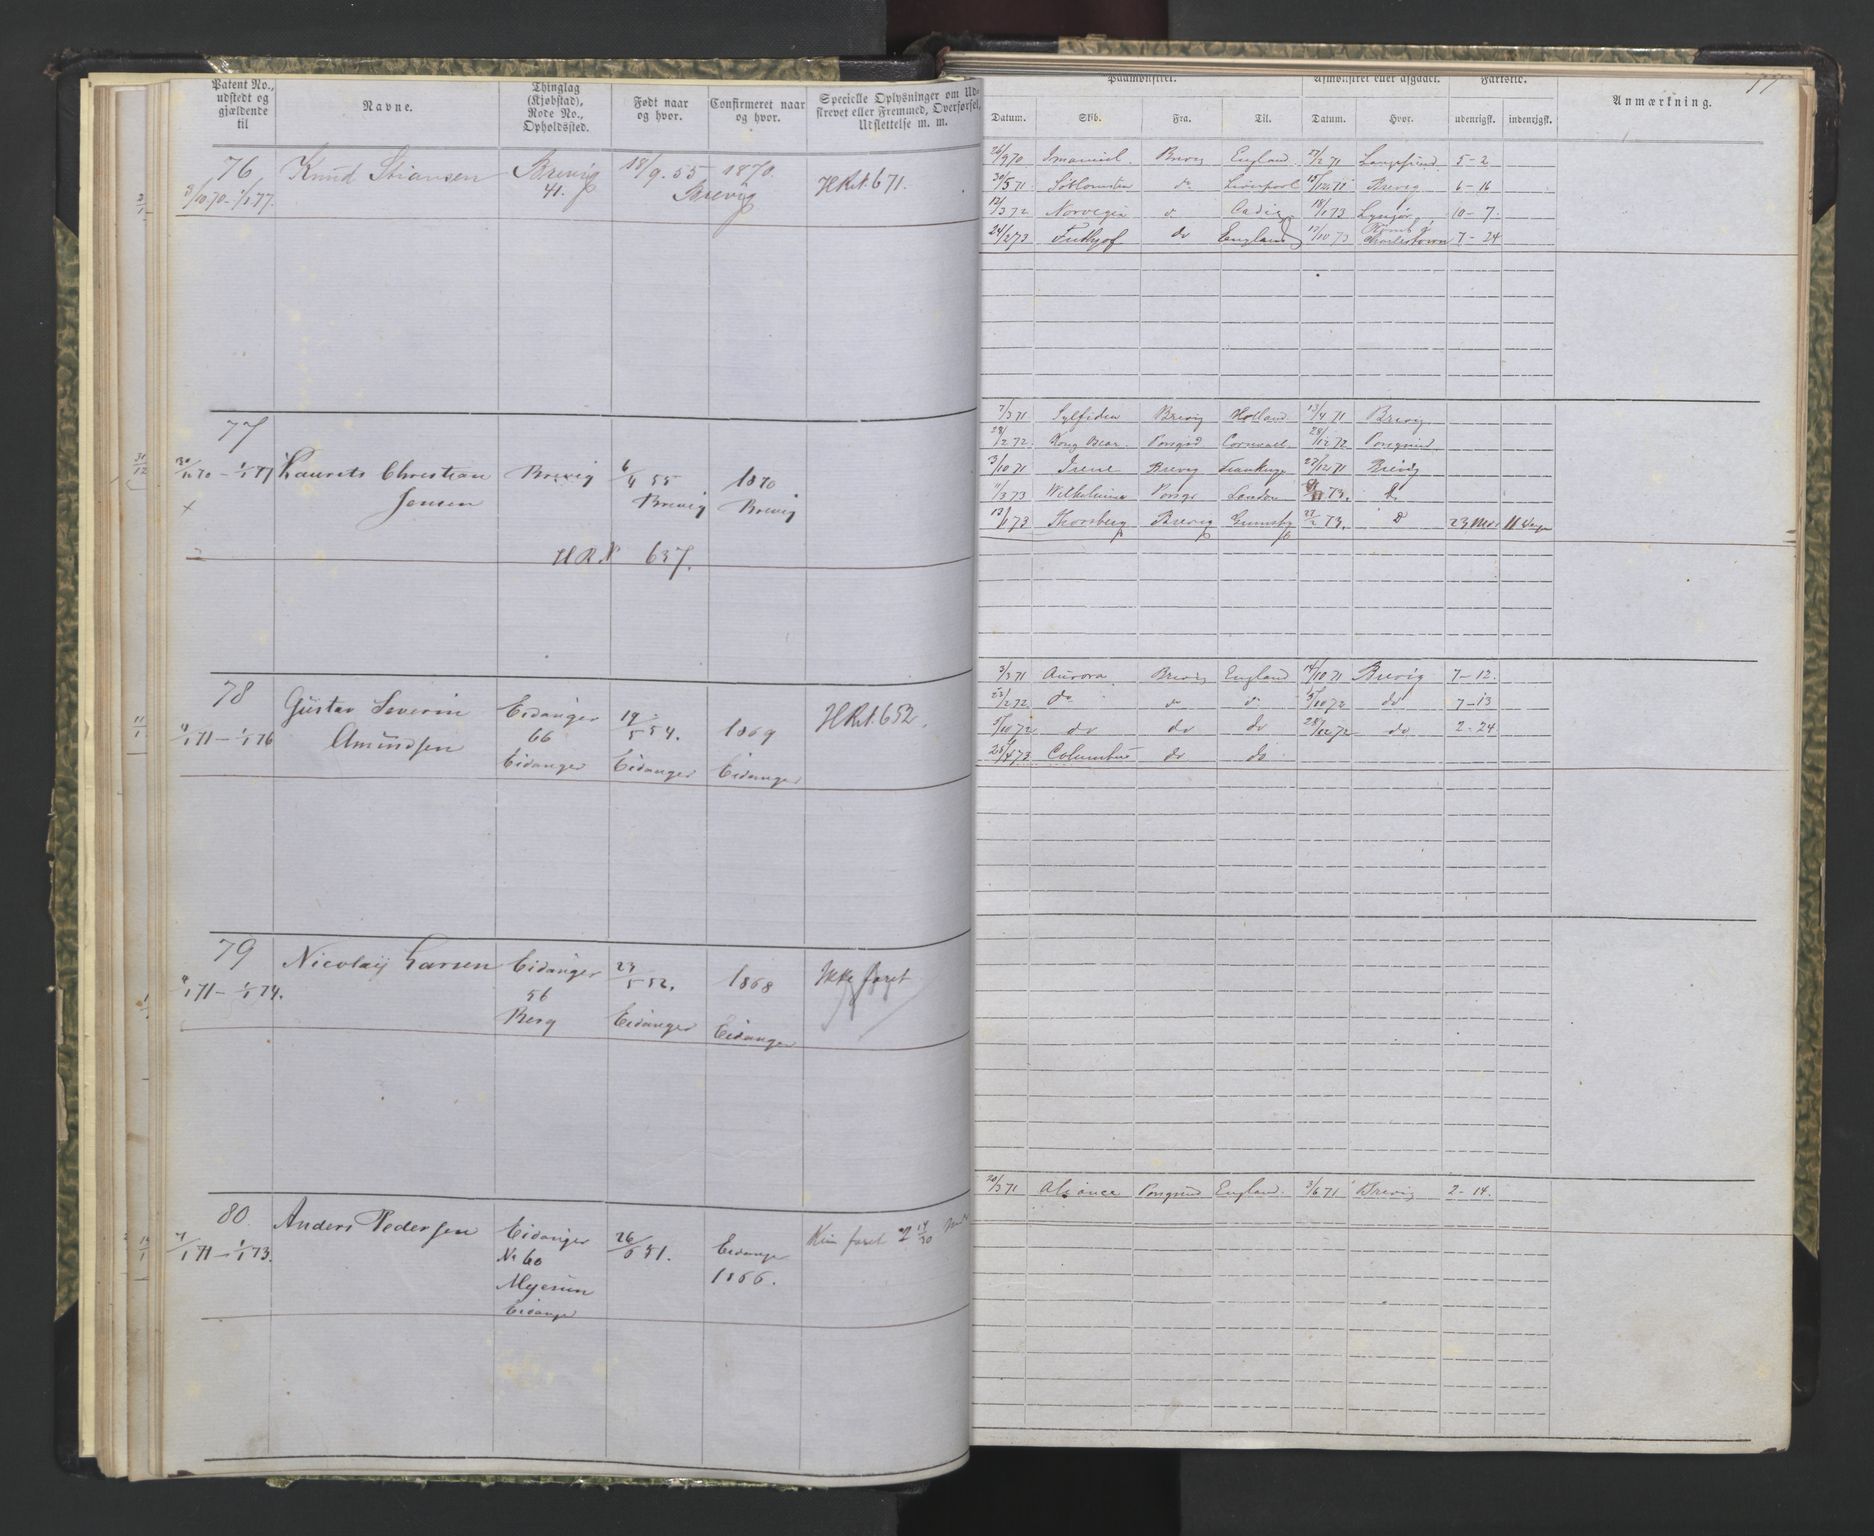 Patent No., udstedt og gjældende til
Navne.
Thinglag (Kjøbstad), Rode No., Opholdssted.
Født naar og hvor.
Confirmeret naar og hvor.
Specielle Oplysninger om Udskrevet eller Fremmed, Overførsel, Udslettelse m. m.
76
3/10 70 - 1/1 77.
Knud Stiansen
Brevig
41.
18/9. 55 - 1870.
Brevig
HRut. 671.
77
30/11 70 - 1/1 77
Laurits Christian
Jensen
Brevig
6/4 55
Brevig
1870
Brevig
H R N 637.
78
4/1 71 - 1/1 76
Gustav Severin
Amundsen
Eidanger
66
Eidanger
19/5 54.
Eidanger
1869
Eidanger
HRut. 652.
79
4/1 71 - 1/1 74.
Nicolaij Larsen
Eidanger
56
Berg
23/5 52.
Eidanger
1868
Eidanger
Ikke faret
80.
7/1 71 - 1/1 73.
Anders Pedersen
Eidanger
No 60
Eidanger
26/5 51.
Eidanger
1866.
faret 2 14/30
77
Paamønstret.
Afmønstret eller afgaaet.
Fartstid.
Anmærkning.
Datum. Skib. Fra. Til. Datum. Hvor. udenrigsk. indenrigsk.
26/9 70 Imanuel. Brevig England 27/2 71 Langesund 5 - 2
30/5 71 do Liverpool 15/12 71 Brevig 6 - 16
12/3 72 Norvegia do Cadix 18/1 73 Lyngør 10 - 7.
24/2 73 do England 12/10 73 Rømt i Charlestown 7 - 24
7/3 71 Sylfiden Brevig Holland 13/4 71 Brevig
28/2 72. Porsgrd Cornwall. 28/12 72 Porsgrund
3/10 71 Irene Brevig 27/12 71 Brevig
11/3 73 Wilhelmine Porsgr London 73. Do
13/1 73 Thorsberg Brevig Grimsby 27/2 73. Do 23 Mdr 11 Dage
3/3 71 Aurora Brevig England 14/10 71 Brevig 7 - 12.
23/2 72 do do do 5/10 72 do 7 - 13
5/10 72 do do do 28/12 72 do 2 - 24
25/4 73 Columbus do do
20/3 71 Aliance Porsgrund England. 3/6 71 Brevig 2 - 14.